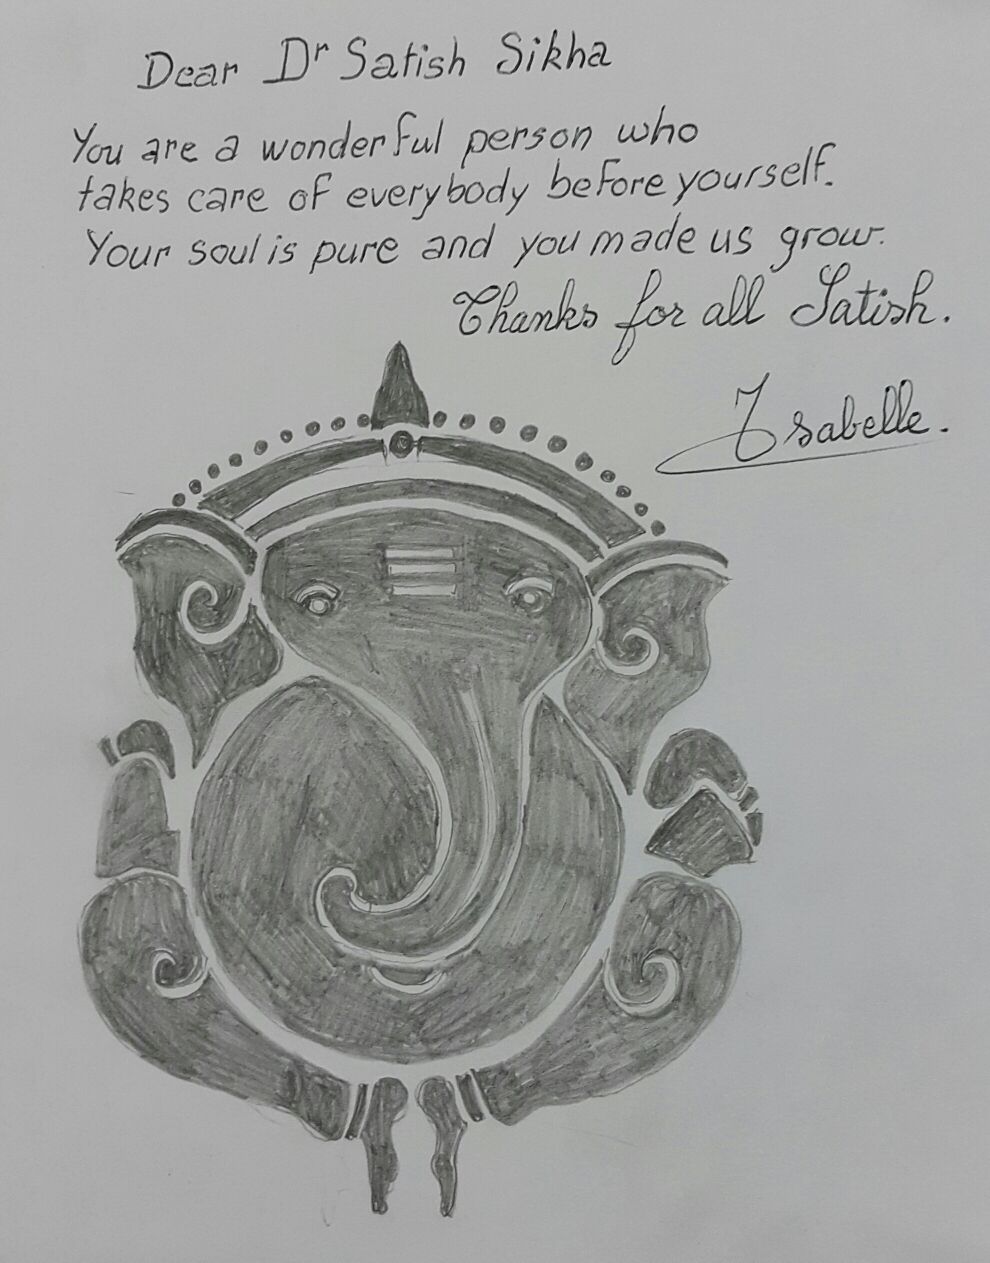 Dear Dr Satish Sikha
You are a wonderful person who
takes care of everybody before yourself.
Your soul is pure and you made us grow.
Thanks for all Satish.
Isabelle.